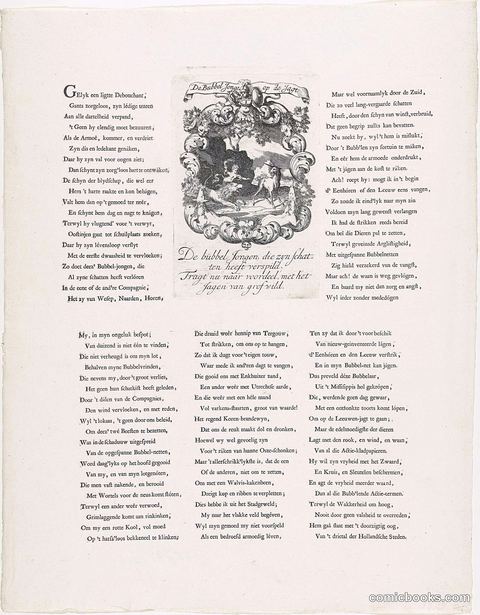 De Bubbel Jonge op de Jagt.
De bubbel Jongen, die zyn schat-
ten heeft verspild.
Tragt nu naar voordeel, met het
Jagen van grof wild.
GElyk een ligtte Debouchant,
Gants zorgeloos, zyn lédige uuren
Aan alle dartelheid verpand,
't Geen hy elendig moet bezuuren;
Als de Armoê, kommer, en verdriet
Zyn dis en ledekant geniken,
Daar hy zyn val voor oogen ziet;
Dan schynt zyn zorg'loos hart te ontwâken;
De schyn der blydschap, die wel eer
Hem 't harte raakte en kon behâgen,
Valt hem dan op 't gemoed ter neêr,
En schynt hem dag en nagt te knâgen;
Terwyl hy vlugtend' voor 't verwyt,
Oostinjen gaat tot schuilplaats zoeken,
Daar hy zyn lévensloop verslyt
Met de eerste dwaasheid te vervloeken;
Zo doet deez' Bubbel-jongen, die
Al zyne schatten heeft verlooren
In de eene of de and're Compagnie,
Het zy van Wesep, Naarden, Horen,
Maar wel voornaamlyk door de Zuid,
Die zo veel lang-vergaarde schatten
Heeft, door den schyn van winst, verbruid,
Dat geen begrip zulks kan bevatten.
Nu zoekt hy, wyl 't hem is mislukt,
Door 't Bubb'len zyn fortuin te mâken,
En eêr hem de armoede onderdrukt,
Met 't jâgen aan de kost te râken.
Ach! roept hy: mogt ik in 't begin
d' Eenhóren of den Leeuw eens vangen,
Zo zoude ik eind'lyk naar myn zin
Voldoen myn lang gewenst verlangen
Ik had de strikken reeds bereid
Om bei die Dieren pal te zetten,
Terwyl gveinsde Arglistigheid,
Met uitgespanne Bubbelnetten
Zig hield verzekerd van de vangst,
Maar ach! de waan is weg gevlógen,
En baard my niet dan zorg en angst,
Wyl ieder zonder mededógen
My, in myn ongeluk bespot;
Van duizend is niet één te vinden,
Die niet verheugd is om myn lot,
Behalven myne Bubbelvrinden,
Die nevens my, door 't groot verlies,
Het geen hun schatkist heeft geleden,
Door 't dólen van de Compagnies,
Den wind vervloeken, en met reden,
Wyl 't lokaas, 't geen door ons beleid,
Om deez' twé Beesten te bezetten,
Was in de schaduuw uitgespreid
Van de opgespanne Bubbel-netten,
Word daag'lyks op het hoofd gegooid
Van my, en van myn lotgenóten,
Die men vast rakende, en berooid
Met Wortels voor de neus komt stóten,
Terwyl een ander weêr verwoed,
Grimlaggende komt aan rinkinken,
Om my een rotte Kool, vol moed
Op 't hatl'loos bekkeneel te klinken;
Die druid weêr hennip van Tergouw,
Tot strikken, om ons op te hangen,
Zo dat ik dugt voor 't eigen touw,
Waar mede ik and'ren dagt te vangen,
Die gooid ons met Enkhuizer zand,
Een ander weêr met Utrechtse aarde,
En die weêr met een héle mand
Vol varkens-staarten, groot van waarde!
Het regend Koren-brandewyn,
Dat ons de reuk maakt dol en dronken,
Hoewel wy wel gevoelig zyn
Voor 't ruiken van haanne Oste-schonken;
Maar 't allerschrikk'lykste is, dat de een
Of de anderen, niet om te zetten,
Om met een Walvis-kakebeen,
Dreigt kop en ribben te verpletten;
Dies hebbe ik uit het Stadgewéld;
My naar het vlakke veld begéven,
Wyl myn gemoed my niet voorspeld
Als een bedroefd armoedig léven,
Ten zy dat ik door 't voorbeschik
Van nieuw-geïnventeerde lâgen,
d' Eenhóren en den Leeuw verstrik,
En in myn Bubbel-net kan jâgen.
Dus preveld déze Bubbelaar,
Uit 't Missisippis hol gekrópen,
Die, werdende geen dag gewaar,
Met een ontstonkte toorts komt lópen,
Om op de Leeuwen-jagt te gaan;
Maar de edelmoedigste der dieren
Lagt met den rook, en wind, en waan,
Van al die Actie-kladpapieren.
Hy wil zyn vryheid met het Zwaard,
En Kruis, en Sleutelen beschermen,
En agt de vryheid meerder waard,
Dan al die Bubb'lende Actie-termen.
Terwyl de Wakkerheid om hoog,
Nooit door geen valsheid te overreeden,
Hem gaâ slaat met 't doorzigtig oog,
Van 't drietal der Hollandsche Steden.
comicbooks.com